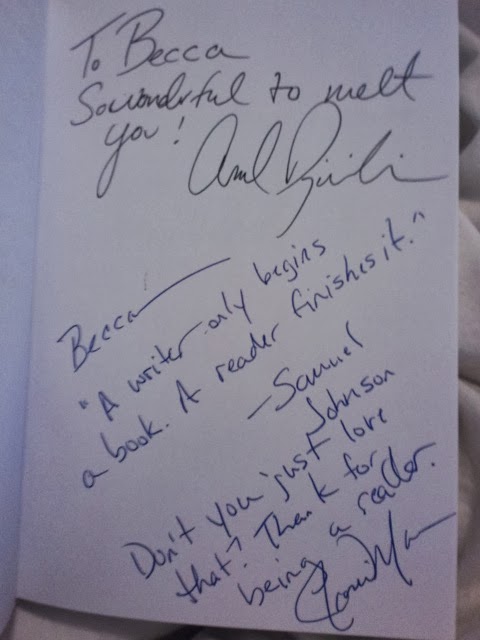 To Becca
So wonderful to meet
you!
Becca
"A writer only begins
a book. A reader finishes it."
—Samuel
Johnson
Don't you just love
that? Thank for
being a reader.